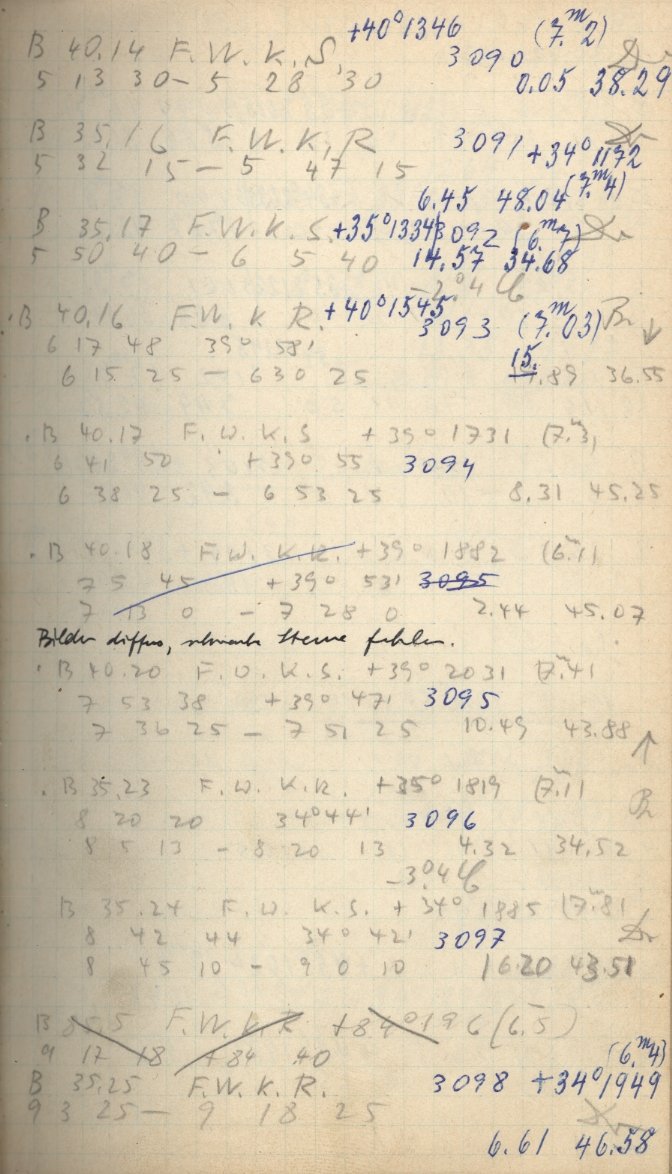 B 40.14 F.W.K.S. +40°1346 (7.ᵐ2)
3090
5 13 30 – 5 28 30 0.05 38.29
B 35.16 F.W.K.R 3091 +34°1172
5 32 15 – 5 47 15 (7.ᵐ4)
6.45 48.04
B 35.17 F.W.K.S. +35°1334 3092 (6.ᵐ7)
5 50 40 – 6 5 40 14.57 34.68
–2°.4 C
B 40.16 F.W.K R. +40°1545 3093 (7.ᵐ03) Br
6 17 48 39° 58'
6 15 25 – 6 30 25 15.89 36.55
B 40.17 F.W.K.S +39° 1731 (7.ᵐ3)
6 41 50 +39° 55 3094
6 38 25 – 6 53 25 8.31 45.25
B 40.18 F.W. K.R. +39° 1882 (6.ᵐ1)
7 5 45 +39° 53' 3095
7 13 0 – 7 28 0 2.44 45.07
Bilder diffus, schwache Sterne fehlen.
B 40.20 F.W.K.S. +39° 2031 (7.ᵐ4)
7 53 38 +39° 47' 3095
7 36 25 – 7 51 25 10.49 43.88
B 35.23 F.W.K.R. +35° 1819 (7.ᵐ1)
Br
8 20 20 34°44' 3096
8 5 13 – 8 20 13 4.32 34.52
–3°.4 C
B 35.24 F.W. K.S. + 34° 1885 (7.ᵐ8)
8 42 44 34° 42' 3097
8 45 10 – 9 0 10 16.20 43.51
B 85.5 F.W.K.R +84°196 (6.ᵐ5)
9 17 18 +84 40
(6.ᵐ4)
B 35.25 F.W.K.R. 3098 +34°1949
9 3 25 – 9 18 25
6.61 46.58